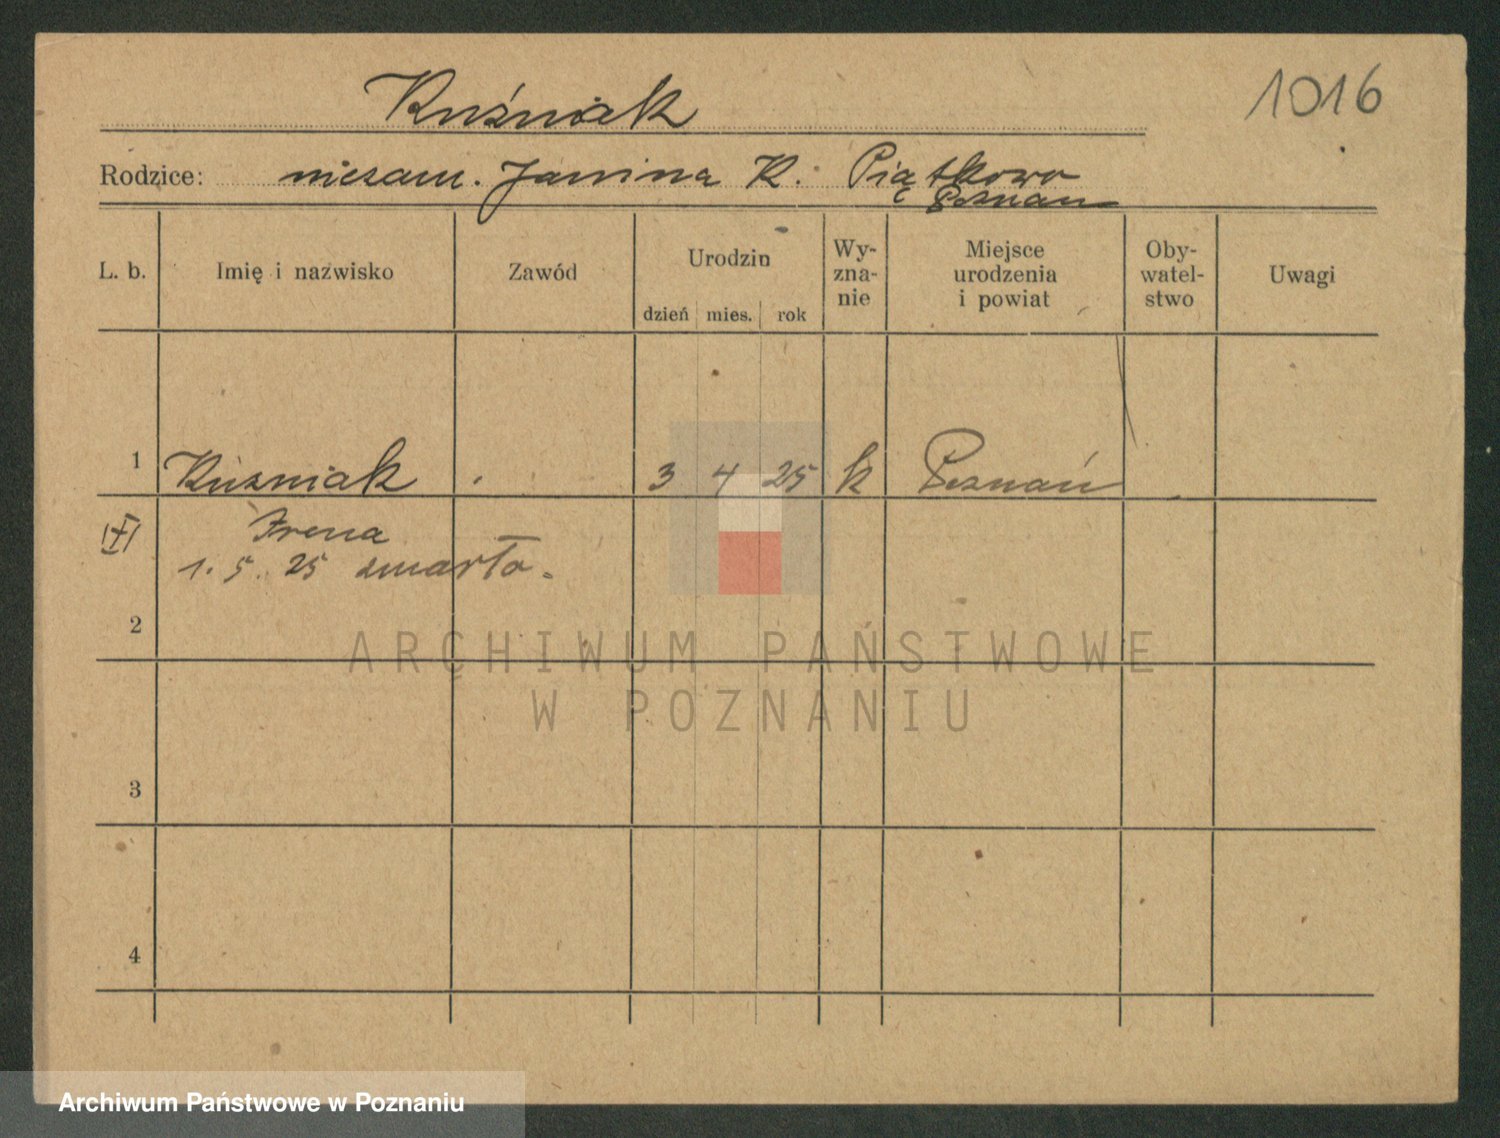 Kuźniak
1016
Rodzice: niezam. Janina K. Piątkowo
Poznań
L. b. Imię i nazwisko Zawód Urodzin Wy-zna-nie Miejsce urodzenia i powiat Oby-watel-stwo Uwagi
dzień mies. rok
1 Kuzniak 3 4 25 k Poznań
Irena
1. 5. 25 zmarła.
2
ARCHIWUM PAŃSTWOWE
W POZNANIU
3
4
Archiwum Państwowe w Poznaniu